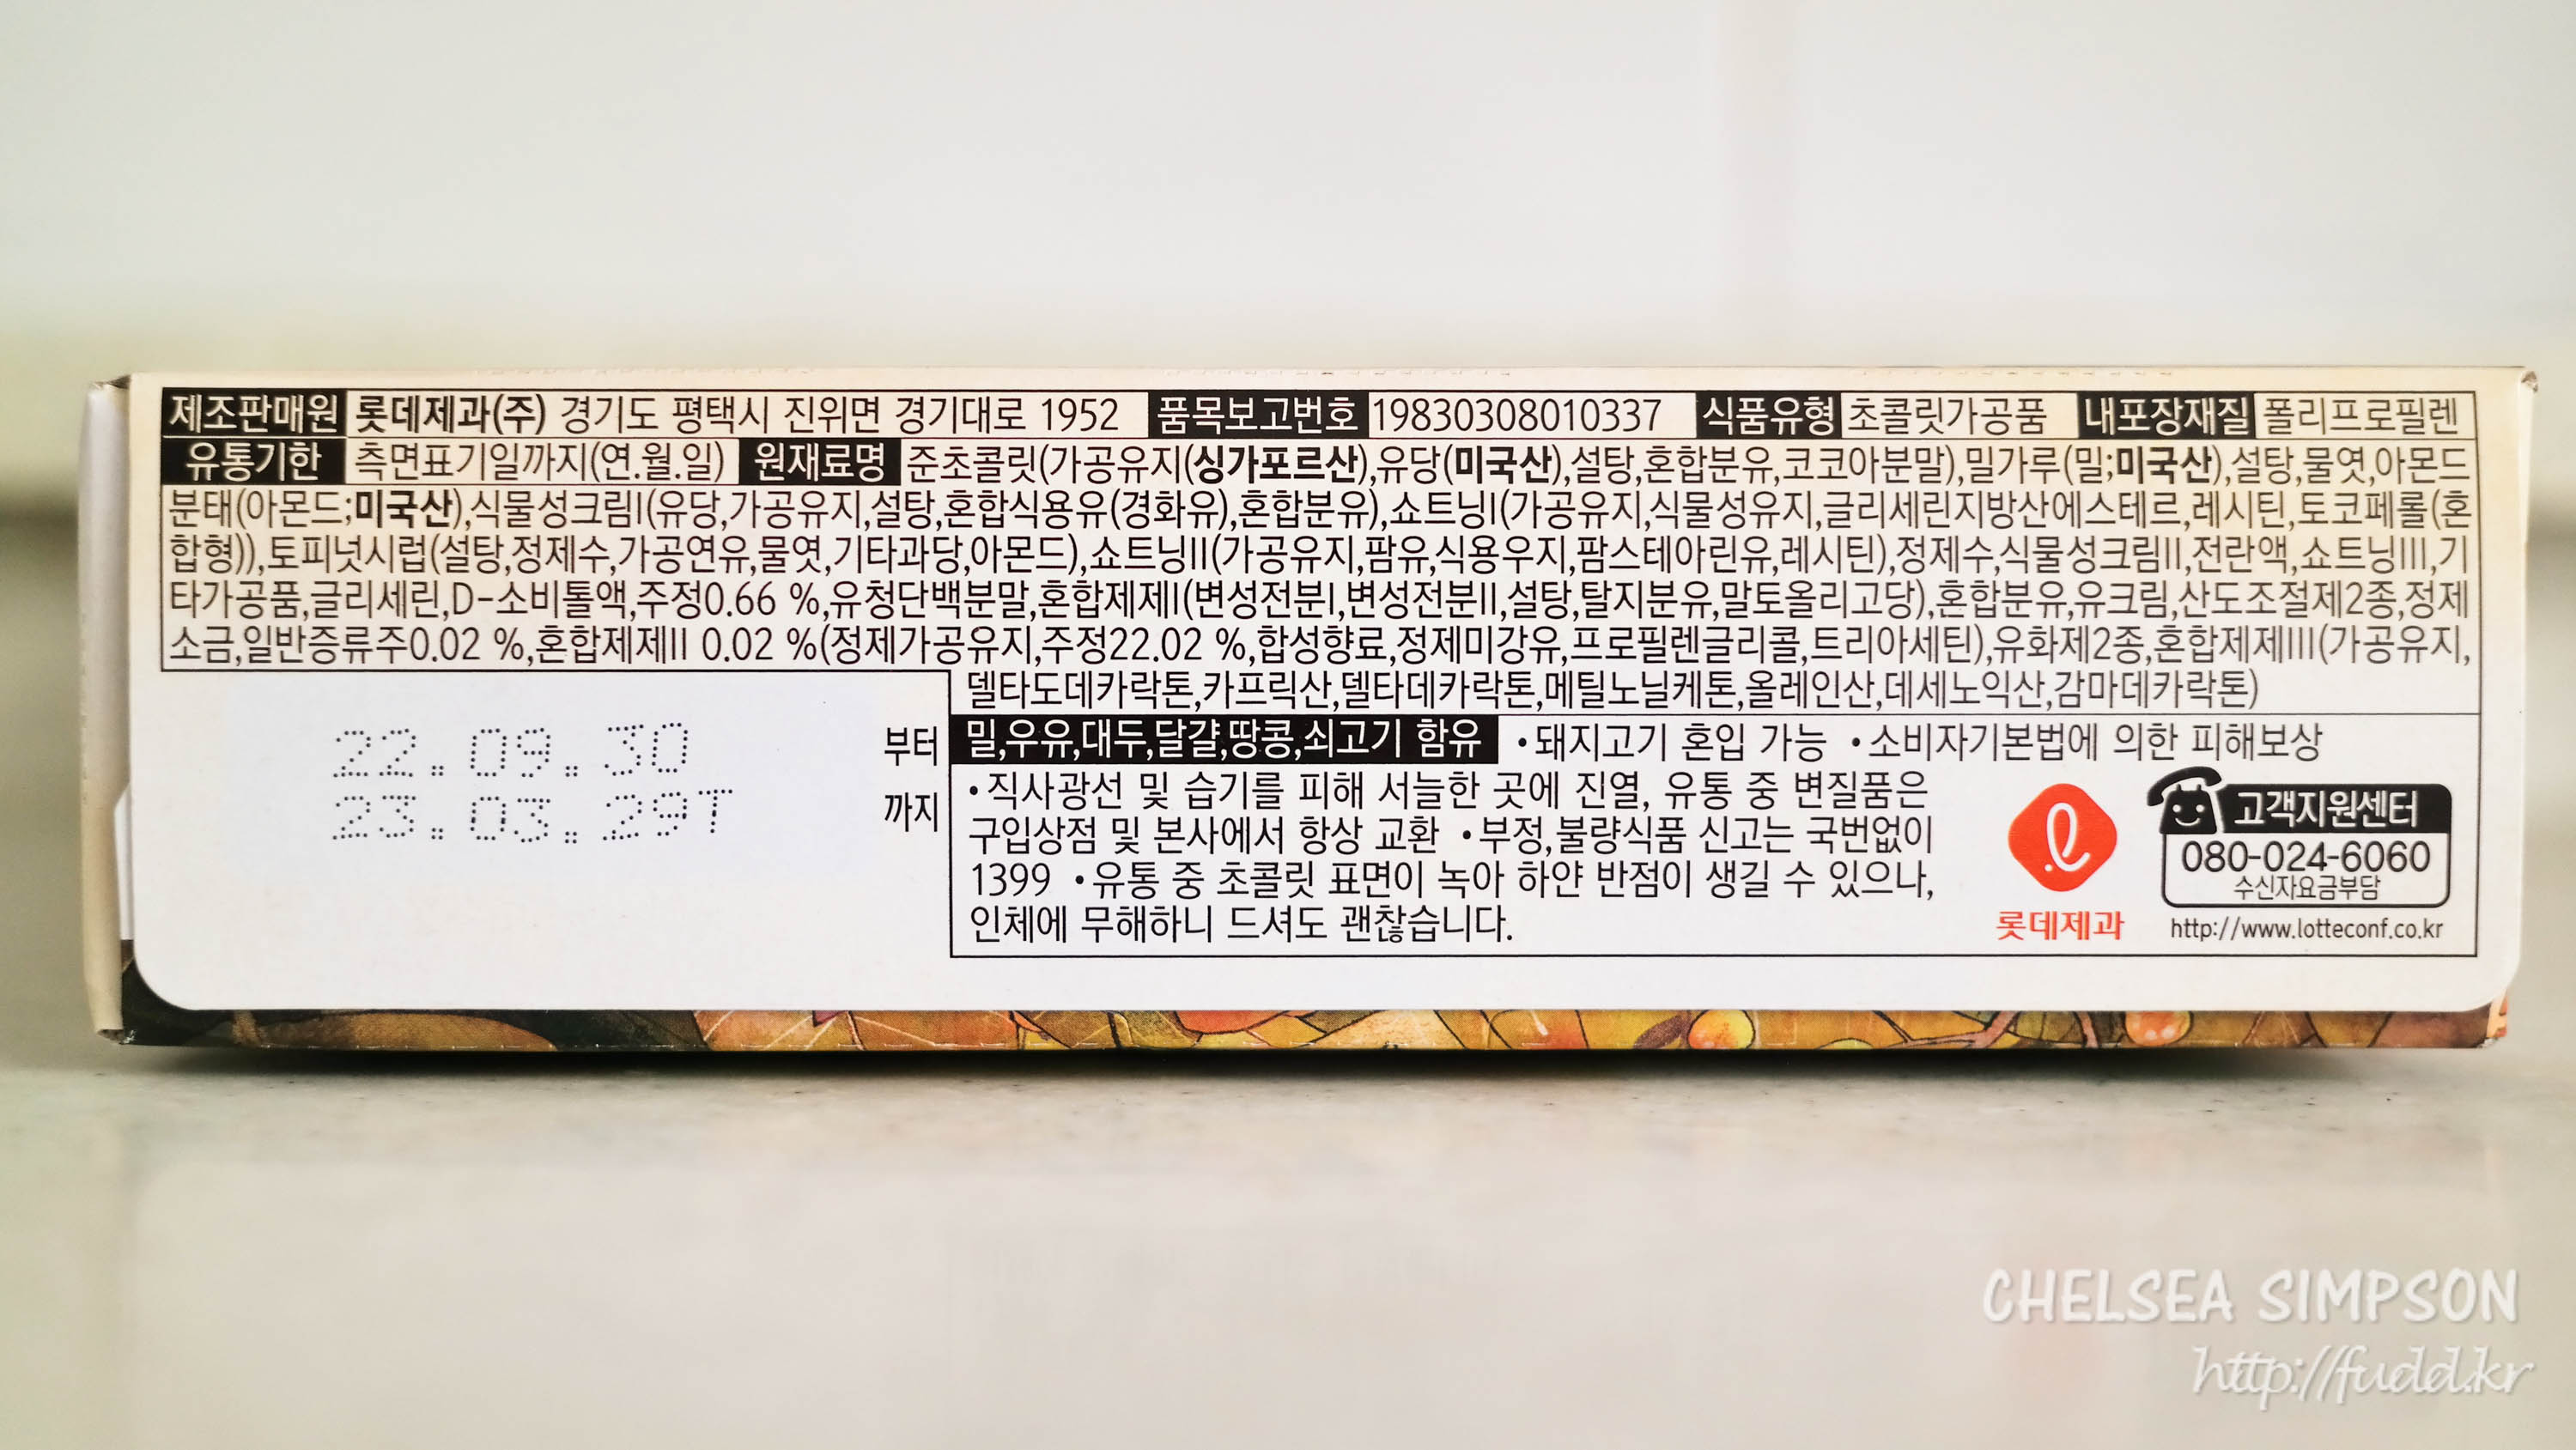 제조판매원 롯데제과(주) 경기도 평택시 진위면 경기대로 1952 품목보고번호 19830308010337 식품유형 초콜릿가공품 내포장재질 폴리프로필렌
유통기한 측면표기일까지(연.월.일) 원재료명 준초콜릿(가공유지(싱가포르산),유당(미국산),설탕,혼합분유,코코아분말),밀가루(밀;미국산),설탕,물엿,아몬드
분태(아몬드;미국산),식물성크림I(유당,가공유지,설탕,혼합식용유(경화유),혼합분유),쇼트닝I(가공유지,식물성유지,글리세린지방산에스테르,레시틴,토코페롤(혼
합형)),토피넛시럽(설탕,정제수,가공연유,물엿,기타과당,아몬드),쇼트닝II(가공유지,팜유,식용우지,팜스테아린유,레시틴),정제수,식물성크림II,전란액,쇼트닝III,기
타가공품,글리세린,D-소비톨액,주정0.66 %,유청단백분말,혼합제제I(변성전분I,변성전분II,설탕,탈지분유,말토올리고당),혼합분유,유크림,산도조절제2종,정제
소금,일반증류주0.02 %,혼합제제II 0.02 %(정제가공유지,주정22.02 %,합성향료,정제미강유,프로필렌글리콜,트리아세틴),유화제2종,혼합제제III(가공유지,
델타도데카락톤,카프릭산,델타데카락톤,메틸노닐케톤,올레인산,데세노익산,감마데카락톤)
22.09.30 부터
23.03.29T 까지
밀,우유,대두,달걀,땅콩,쇠고기 함유 •돼지고기 혼입 가능 •소비자기본법에 의한 피해보상
•직사광선 및 습기를 피해 서늘한 곳에 진열, 유통 중 변질품은
구입상점 및 본사에서 항상 교환 •부정,불량식품 신고는 국번없이
1399 •유통 중 초콜릿 표면이 녹아 하얀 반점이 생길 수 있으나,
인체에 무해하니 드셔도 괜찮습니다.
롯데제과
고객지원센터
080-024-6060
수신자요금부담
http://www.lotteconf.co.kr
CHELSEA SIMPSON
http://fudd.kr